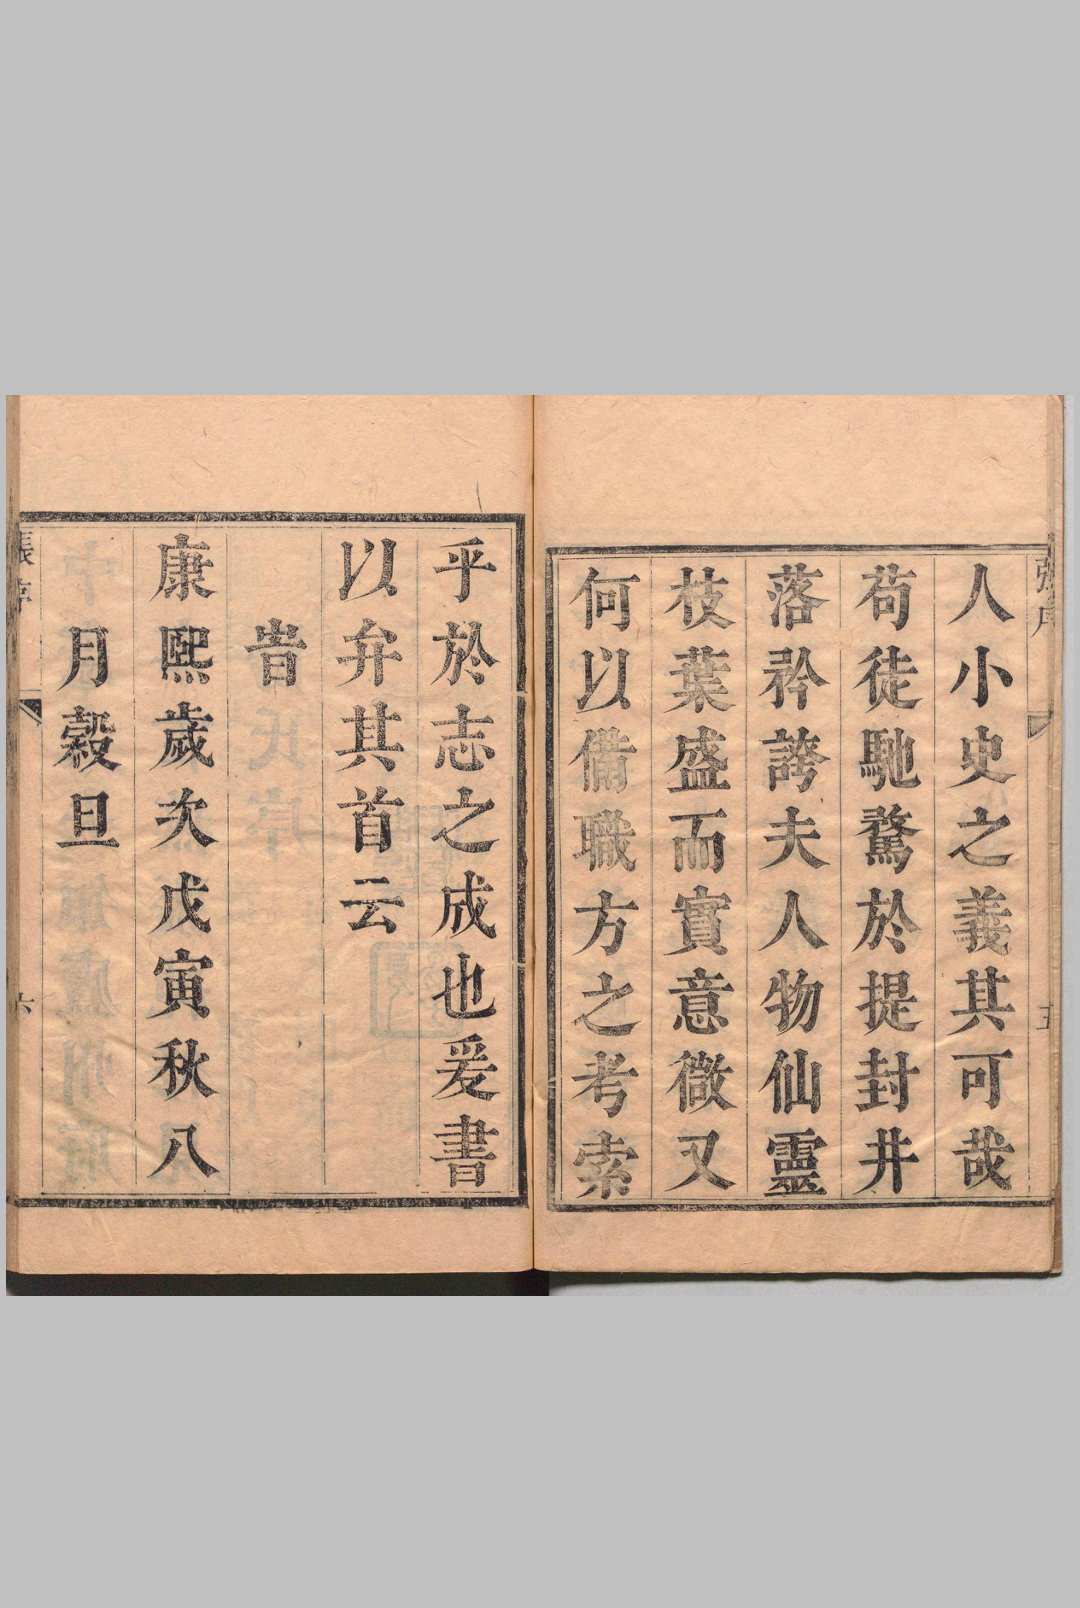 人小史之義其可哉
苟徒馳騖於提封井
落矜誇夫人物仙靈
枝葉盛而實意微又
何以備職方之考索
乎於志之成也爰書
以弁其首云
旹
康熙歲次戊寅秋八
月穀旦
張序
六